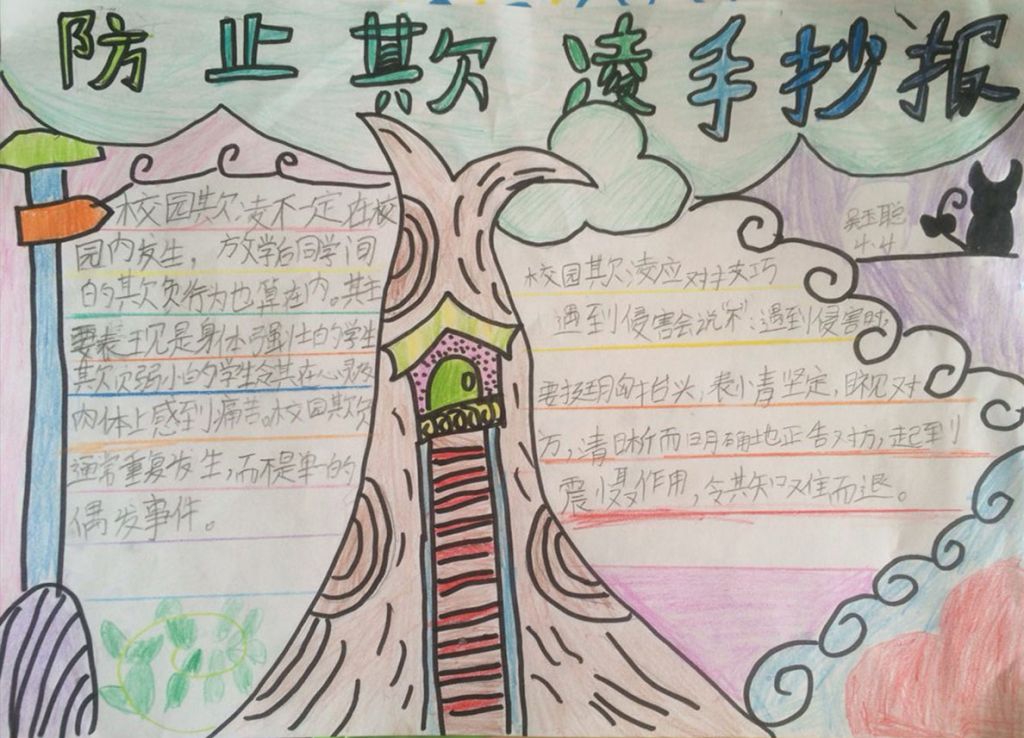 防止欺凌手抄报
校园欺凌不一定在校
园内发生，放学后同学间
的欺负行为也算在内。其主
要表现是身体强壮的学生
欺负弱小的学生令其在心灵及
肉体上感到痛苦。校园欺负
通常重复发生，而不是单一的
偶发事件。
4.4
校园欺凌应对技巧
遇到侵害会说"不"：遇到侵害时，
要挺胸抬头，表情坚定，眼视对
方，清晰而明确地正告对方，起到
震慑作用，令其知难而退。